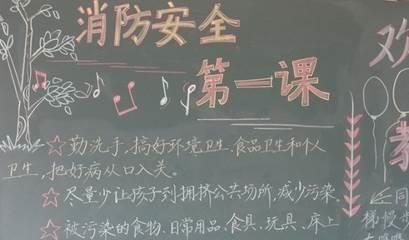 消防安全
第一课
☆勤洗手,搞好环境卫生、食品卫生和个人
卫生,把好病从口入关。
☆尽量少让孩子到拥挤公共场所,减少污染
☆被污染的食物、日常用品、食具、玩具、床上
欢
教
同
梯慢步